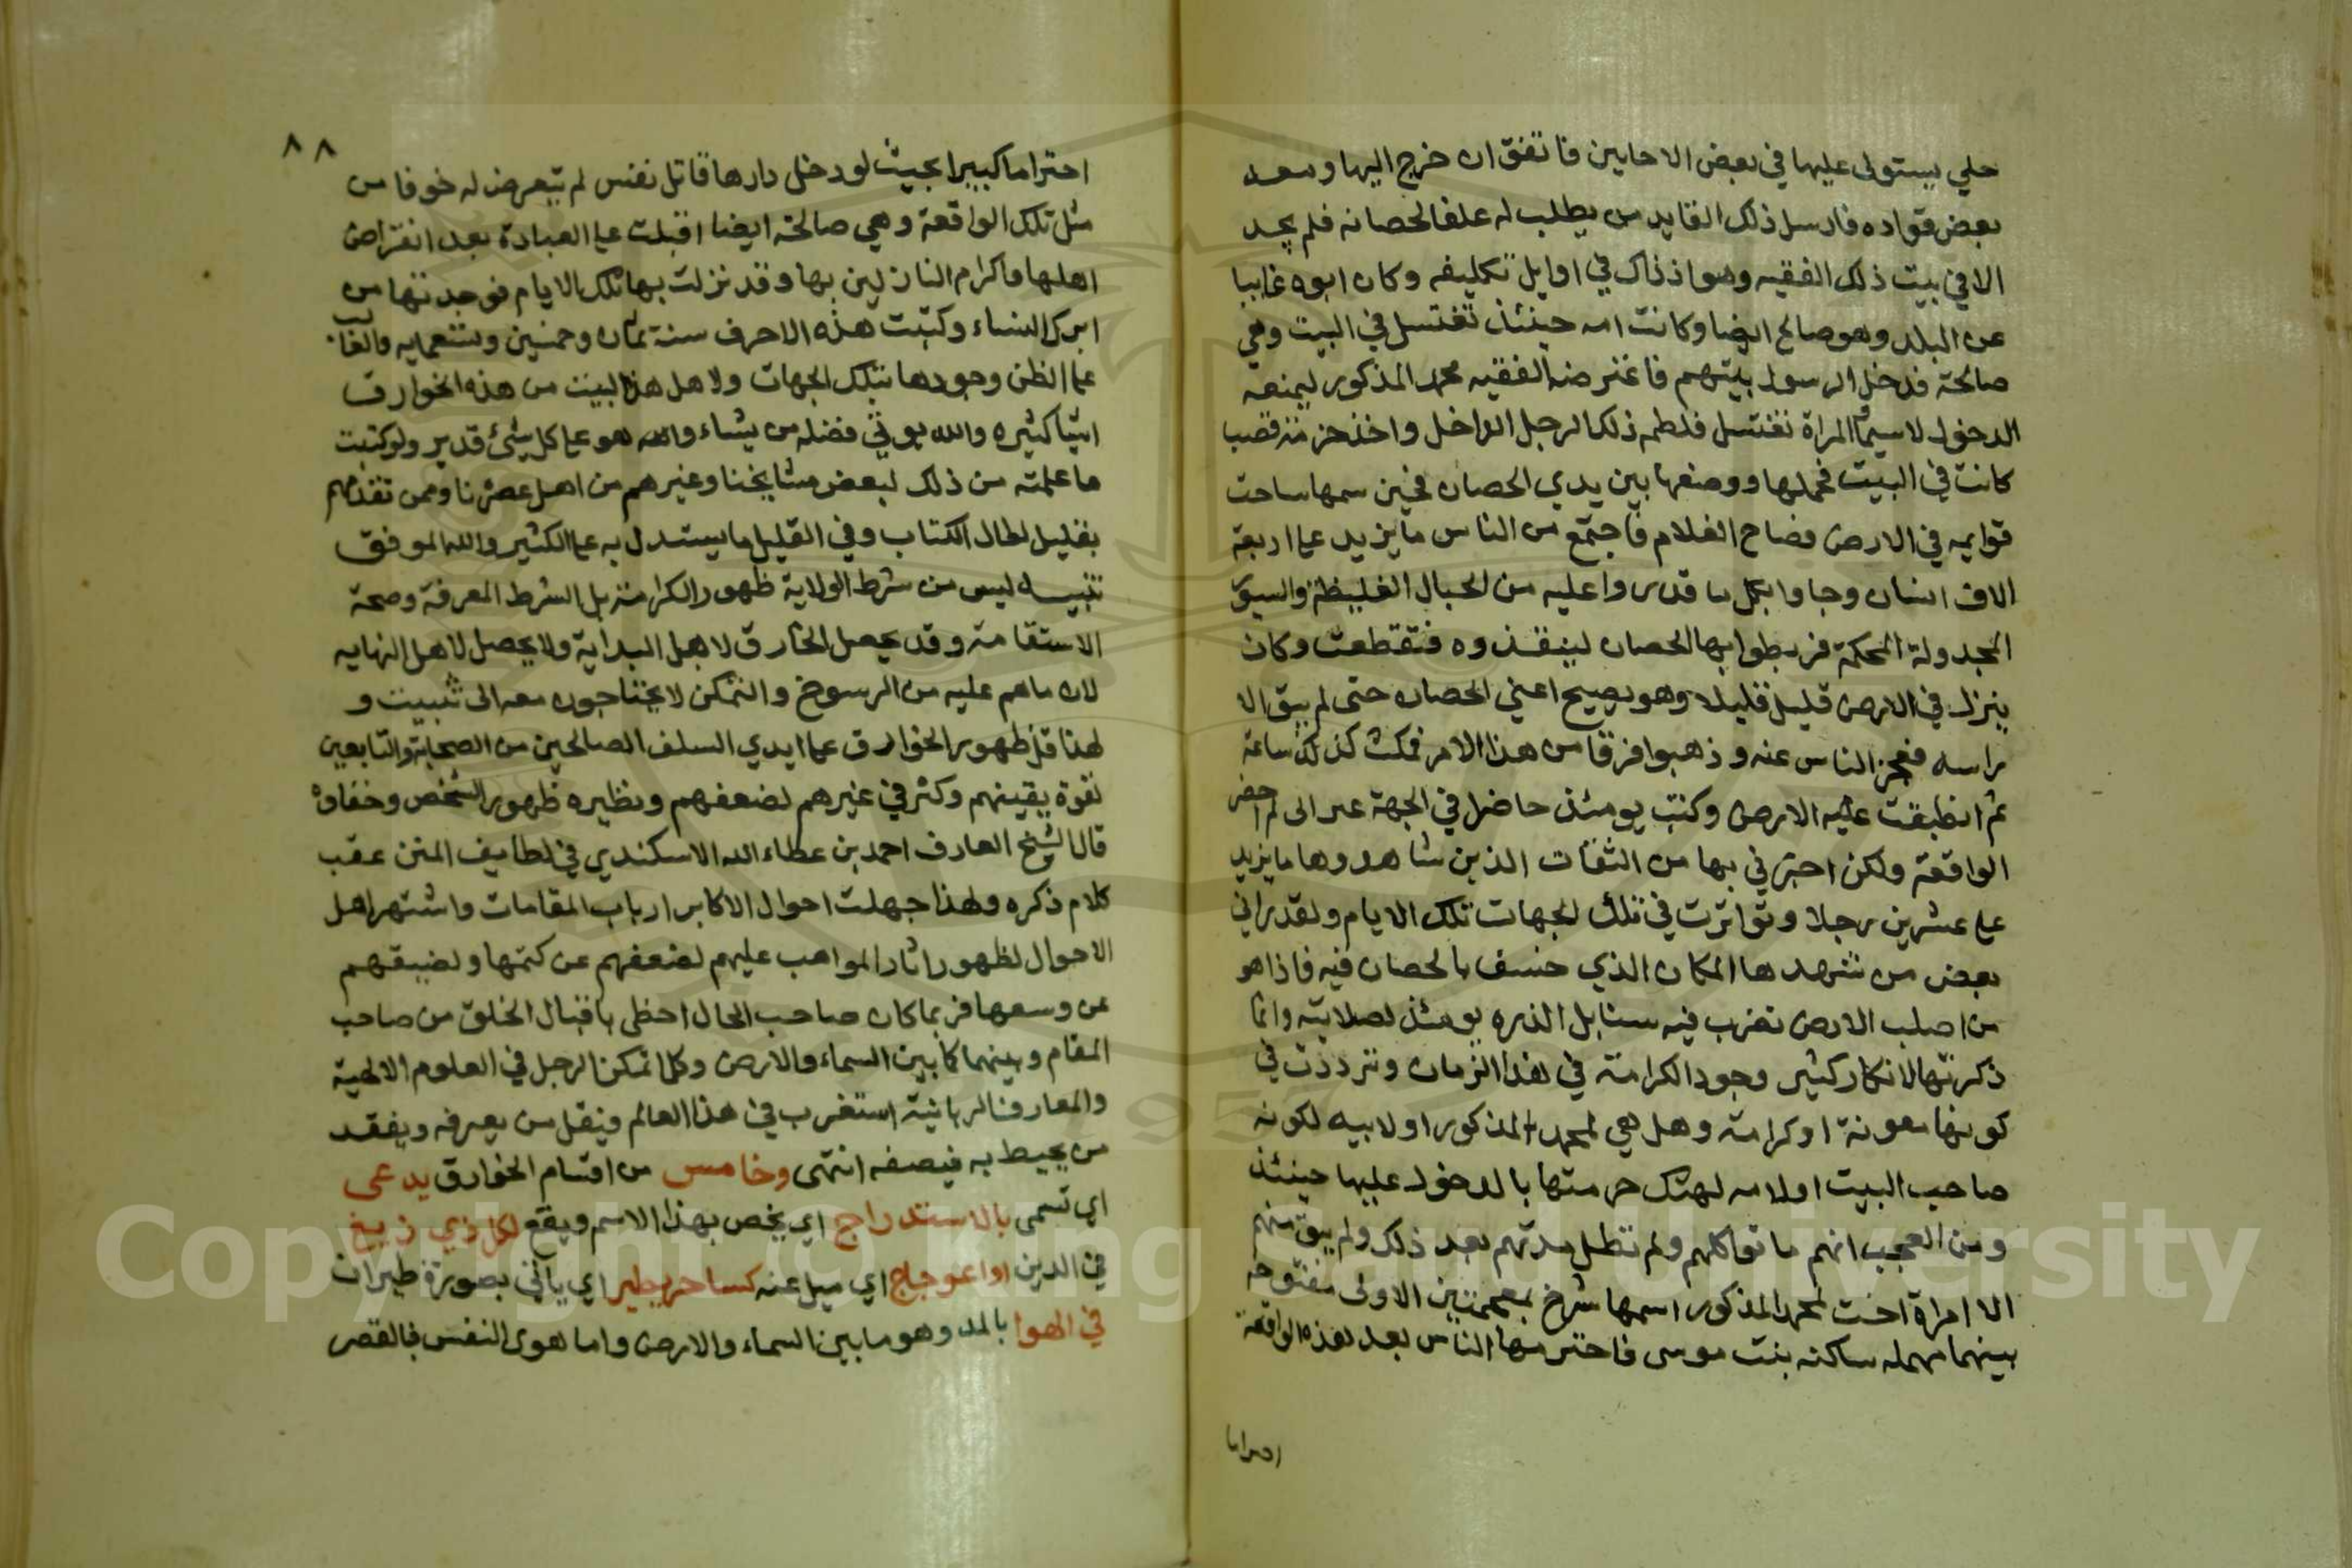 حلي يستولي عليها في بعض الاحايين فاتفق ان خرج اليها ومعه
بعض قواده فارسل ذلك القايد من يطلب له علفا لحصانه فلم يجد
الا في بيت ذلك الفقيه وهو اذ ذاك في اوايل تكليفه وكان ابوه غايبا
عن البلد وهو صالح ايضا وكانت امه حينئذ تغتسل في البيت وهي
صالحة فدخل الرسول بيتهم فاعترضه الفقيه محمد المذكور ليمنعه
الدخول لاسيما المراة تغتسل فلطمه ذلك الرجل الداخل واخذ حزمة قصب
كانت في البيت فحملها ووضعها بين يدي الحصان فحين شمها ساحت
قوايمه في الارض فصاح الغلام فاجتمع من الناس ما يزيد على اربعة
الاف انسان وجاوا بكل ما قدروا عليه من الحبال الغليظة والسيور
المجدولة المحكمة فربطوا بها الحصان لينقذوه فتقطعت وكان
ينزل في الارض قليلا قليلا وهو يصيح اعني الحصان حتى لم يبق الا
راسه فعجز الناس عنه وذهبوا فرقا من هذا الامر فمكث كذلك ساعة
ثم انطبقت عليه الارض وكنت يومئذ حاضرا في الجهة غير اني لم احضر
الواقعة ولكن اخبرني بها من الثقات الذين شاهدوها ما يزيد
على عشرين رجلا وتواترت في تلك الجهات تلك الايام ولقد اراني
بعض من شهدها المكان الذي خسف بالحصان فيه فاذا هو
من اصلب الارض تضرب فيه سنابل الذره يومئذ لصلابته وانما
ذكرتها لانكار كثير وجود الكرامة في هذا الزمان وترددت في
كونها معونة او كرامة وهل هي لمحمد المذكور او لابيه لكونه
صاحب البيت او لامه لهتك حرمتها بالدخول عليها حينئذ
ومن العجب انهم ماتوا كلهم ولم تطل مدتهم بعد ذلك ولم يبق منهم
الا امراة اخت لمحمد المذكور اسمها شرخ بمعجمتين الاولى مفتوحة
بينهما مهمله ساكنه بنت موسى فاحترمها الناس بعد هذه الواقعة
احتراما
٨٨
احتراما كبيرا بحيث لو دخل دارها قاتل نفس لم يتعرض له خوفا من
مثل تلك الواقعة وهي صالحة ايضا اقبلت على العبادة بعد انقراض
اهلها واكرام النازلين بها وقد نزلت بها تلك الايام فوجدتها من
ابرك النساء وكتبت هذه الاحرف سنة ثمان وخمسين وتسعمايه والغالب
على الظن وجودها بتلك الجهات ولاهل هذا البيت من هذه الخوارق
اشيا كثيره والله يوتي فضله من يشاء والله هو على كل شئ قدير ولو كتبت
ما علمته من ذلك لبعض مشايخنا وغيرهم من اهل عصرنا وممن تقدمهم
بقليل لطال الكتاب وفي القليل ما يستدل به على الكثير والله الموفق
تنبيه ليس من شرط الولاية ظهور الكرامة بل الشرط المعرفة وصحة
الاستقامة وقد يحصل الخارق لاهل البداية ولا يحصل لاهل النهايه
لان ما هم عليه من الرسوخ والتمكن لا يحتاجون معه الى تثبيت و
لهذا قل ظهور الخوارق على ايدي السلف الصالحين من الصحابة والتابعين
لقوة يقينهم وكثر في غيرهم لضعفهم ونظيره ظهور الشخص وخفاوه
قال الشيخ العارف احمد بن عطاء الله الاسكندي في لطايف المنن عقب
كلام ذكره ولهذا جهلت احوال الاكابر ارباب المقامات واشتهر اهل
الاحوال لظهور اثار المواهب عليهم لضعفهم عن كتمها ولضيقهم
عن وسعها فربما كان صاحب الحال احظى باقبال الخلق من صاحب
المقام وبينهما كما بين السماء والارض وكلما تمكن الرجل في العلوم الالهية
والمعارف الربانية استغرب في هذا العالم فيقل من يعرفه ويفقد
من يحيط به فيصفه انتهى وخامس من اقسام الخوارق يدعى
اي تسمى بالاستدراج اي يخص بهذا الاسم ويقع لكل ذي زيغ
في الدين او اعوجاج اي ميل عنه كساحر يطير اي ياتي بصورة طيران
في الهوا بالمد وهو ما بين السماء والارض واما هوى النفس فبالقصر
Copyright © King Saud University
1957